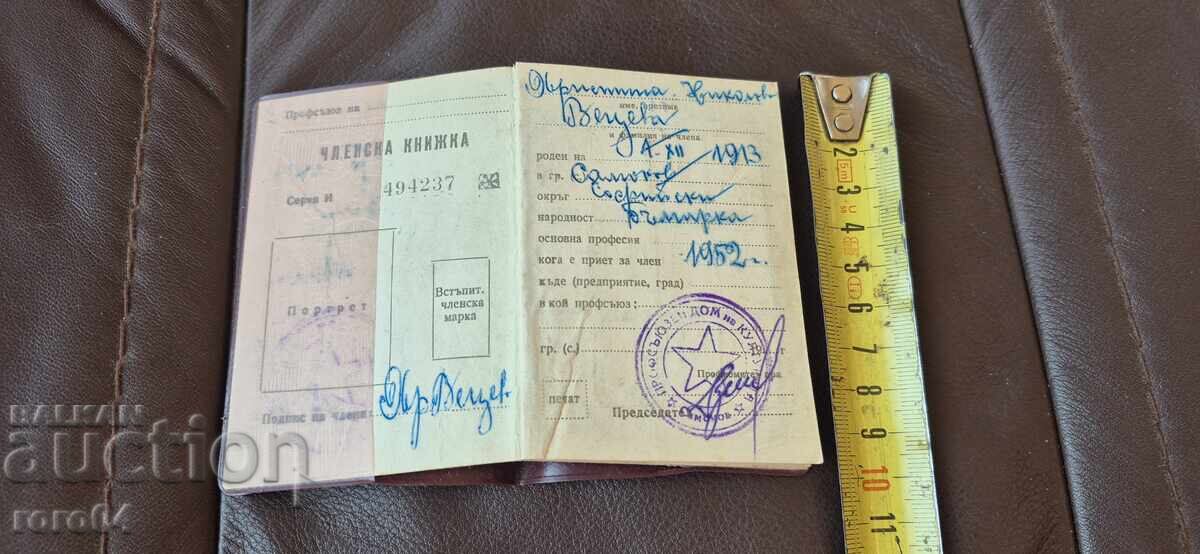 Профсъюз на
ЧЛЕНСКА КНИЖКА
Серия И 494237
Портрет
Встъпит.
членска
марка
Подпис на члена:
Христина Николова
име, презиме
Вецева
и фамилия на члена
роден на 1913
в гр. Самоков
окръг Софийски
народност българка
основна професия
кога е приет за член 1952 г.
къде (предприятие, град)
в кой профсъюз:
гр. (с.)
печат
Председател
ПРОФСЪЮЗЕН ДОМ на
Самоков
BALKAN
auction
roro64
2
3
4
5
6
7
8
9
10
11